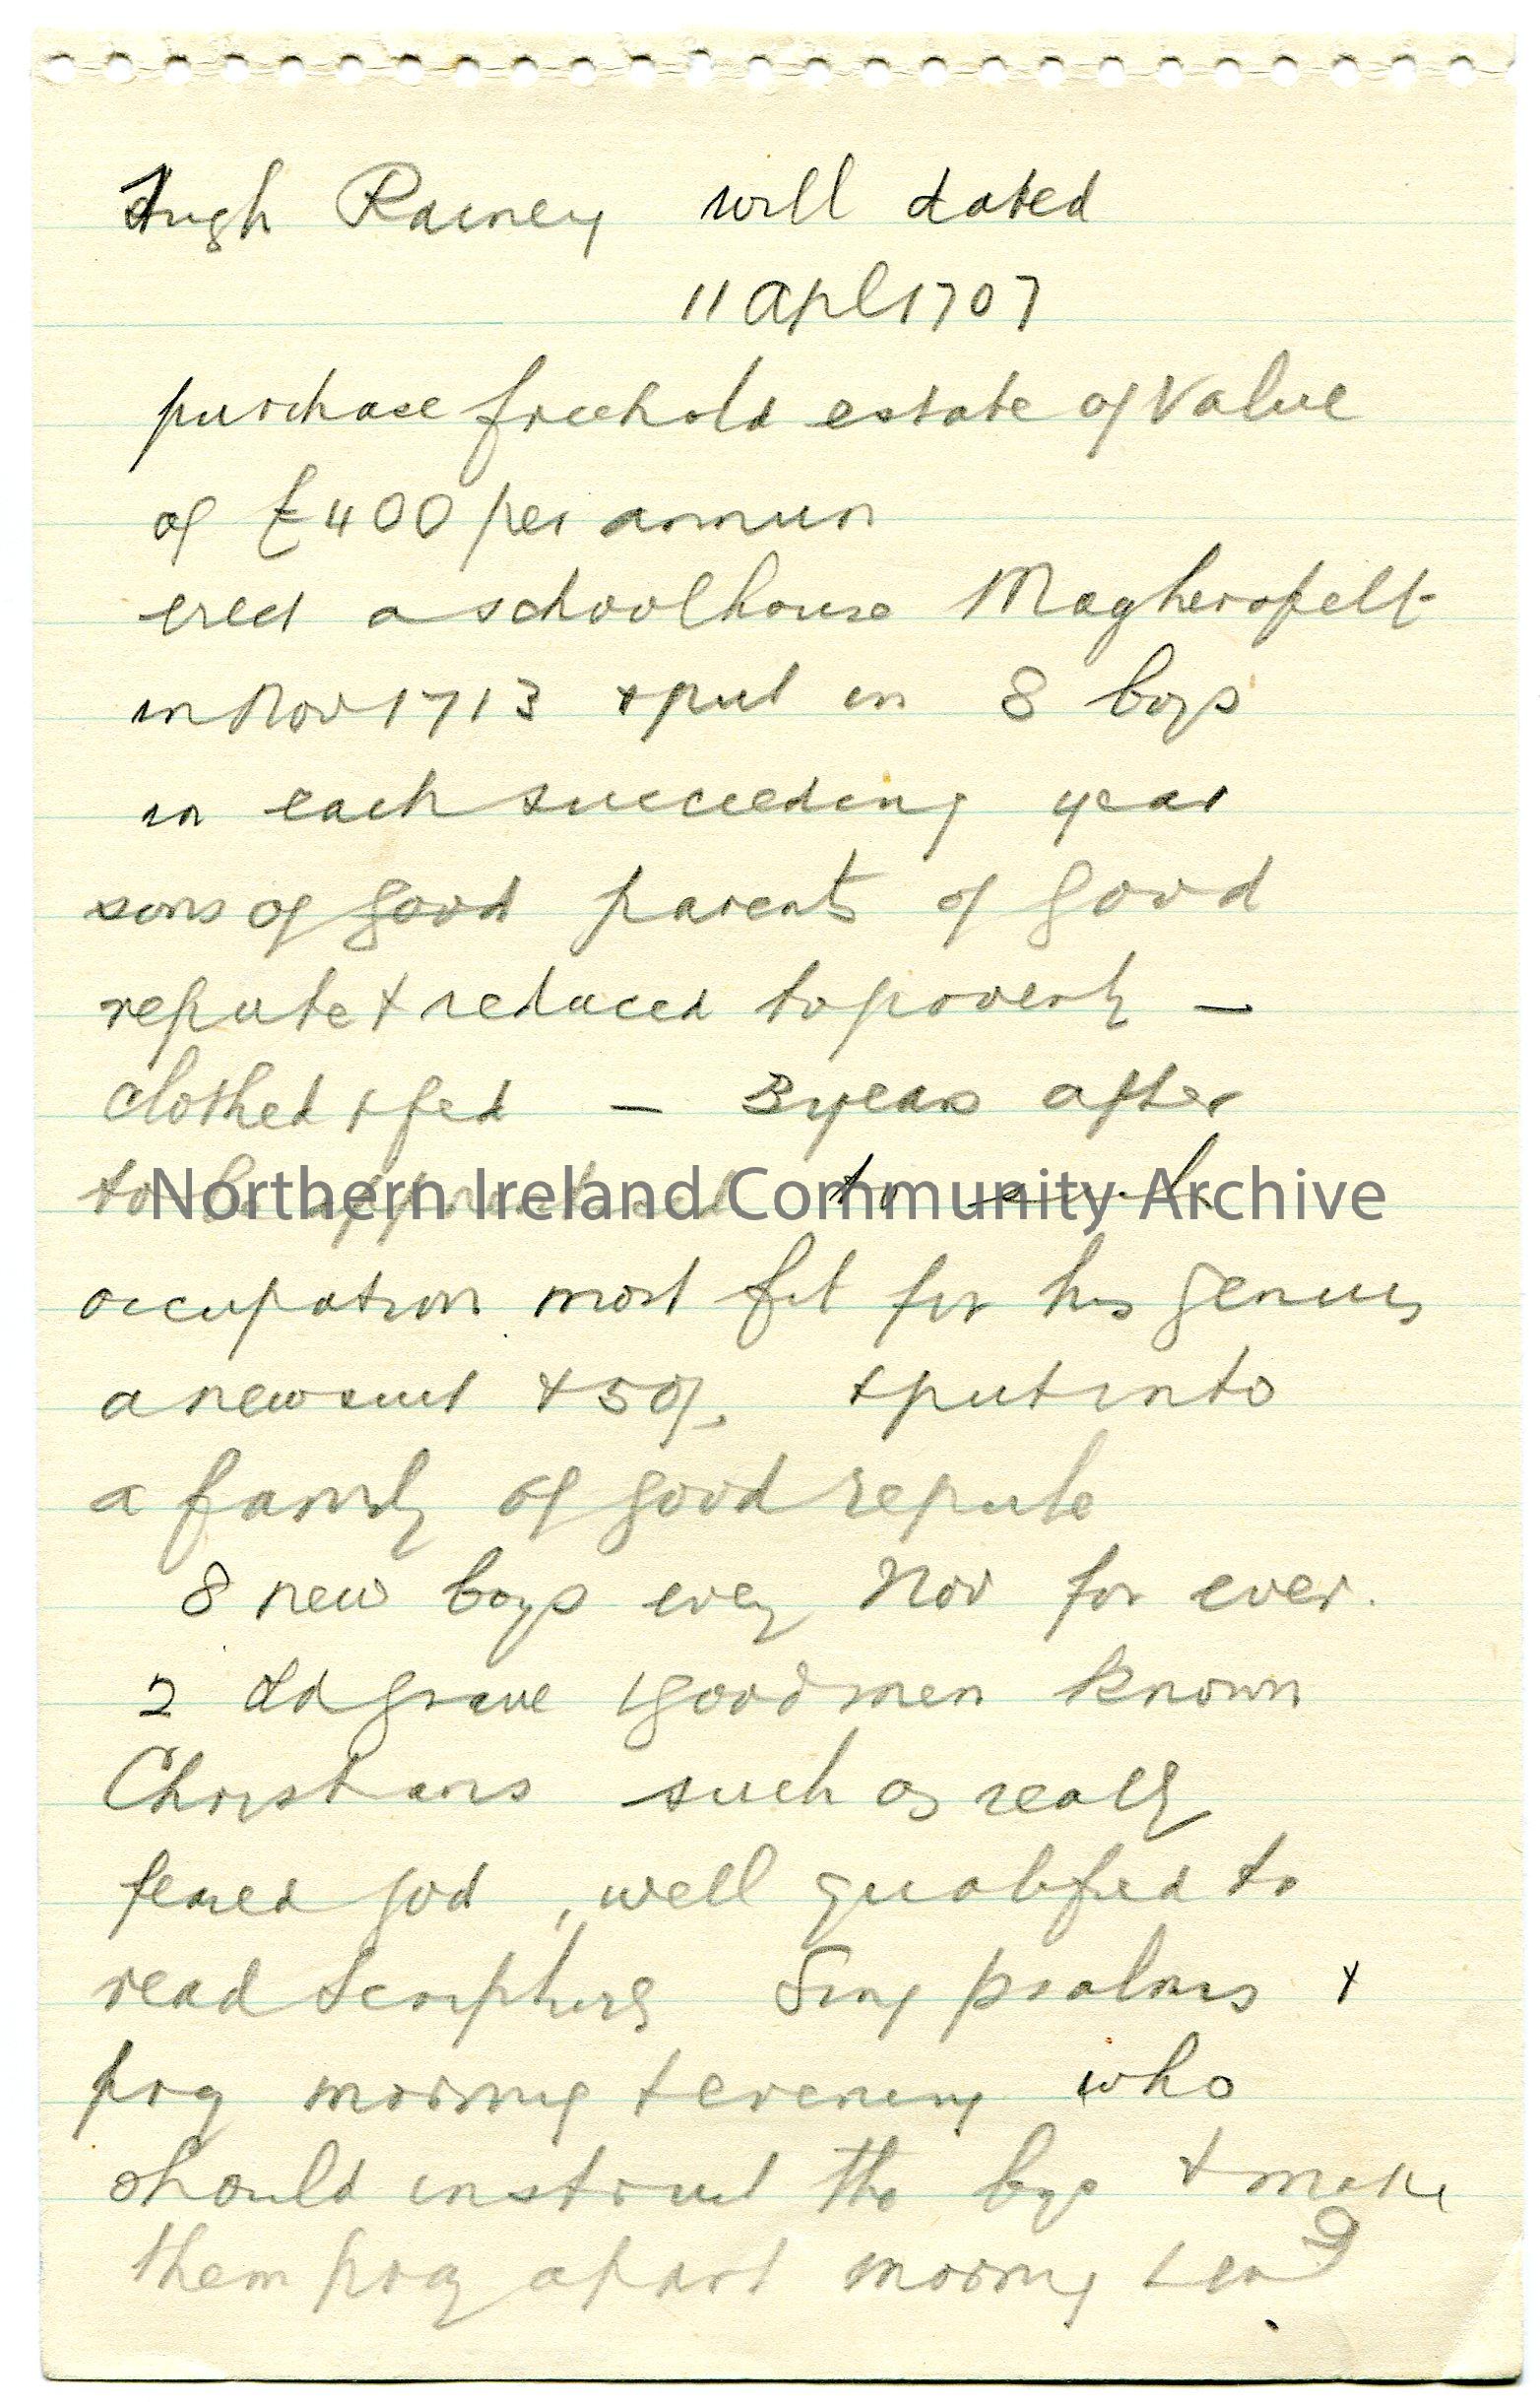 Hugh Rainey will dated
11 Apl 1707
purchase freehold estate of value
of £400 per annum
erect a schoolhouse Magherafelt
in Nov 1713 + put in 8 boys
in each succeeding year
sons of good parents of good
repute + reduced to poverty –
clothed + fed – 3 years after
to be apprenticed to such
Northern Ireland Community Archive
occupation most fit for his genius
a new suit + 50/- + put into
a family of good repute
8 new boys every Nov for ever.
2 old grave + good men known
Christians such as really
feared God, well qualified to
read Scriptures Sing psalms +
pray morning + evening who
should instruct the boys + make
them pray apart morning +